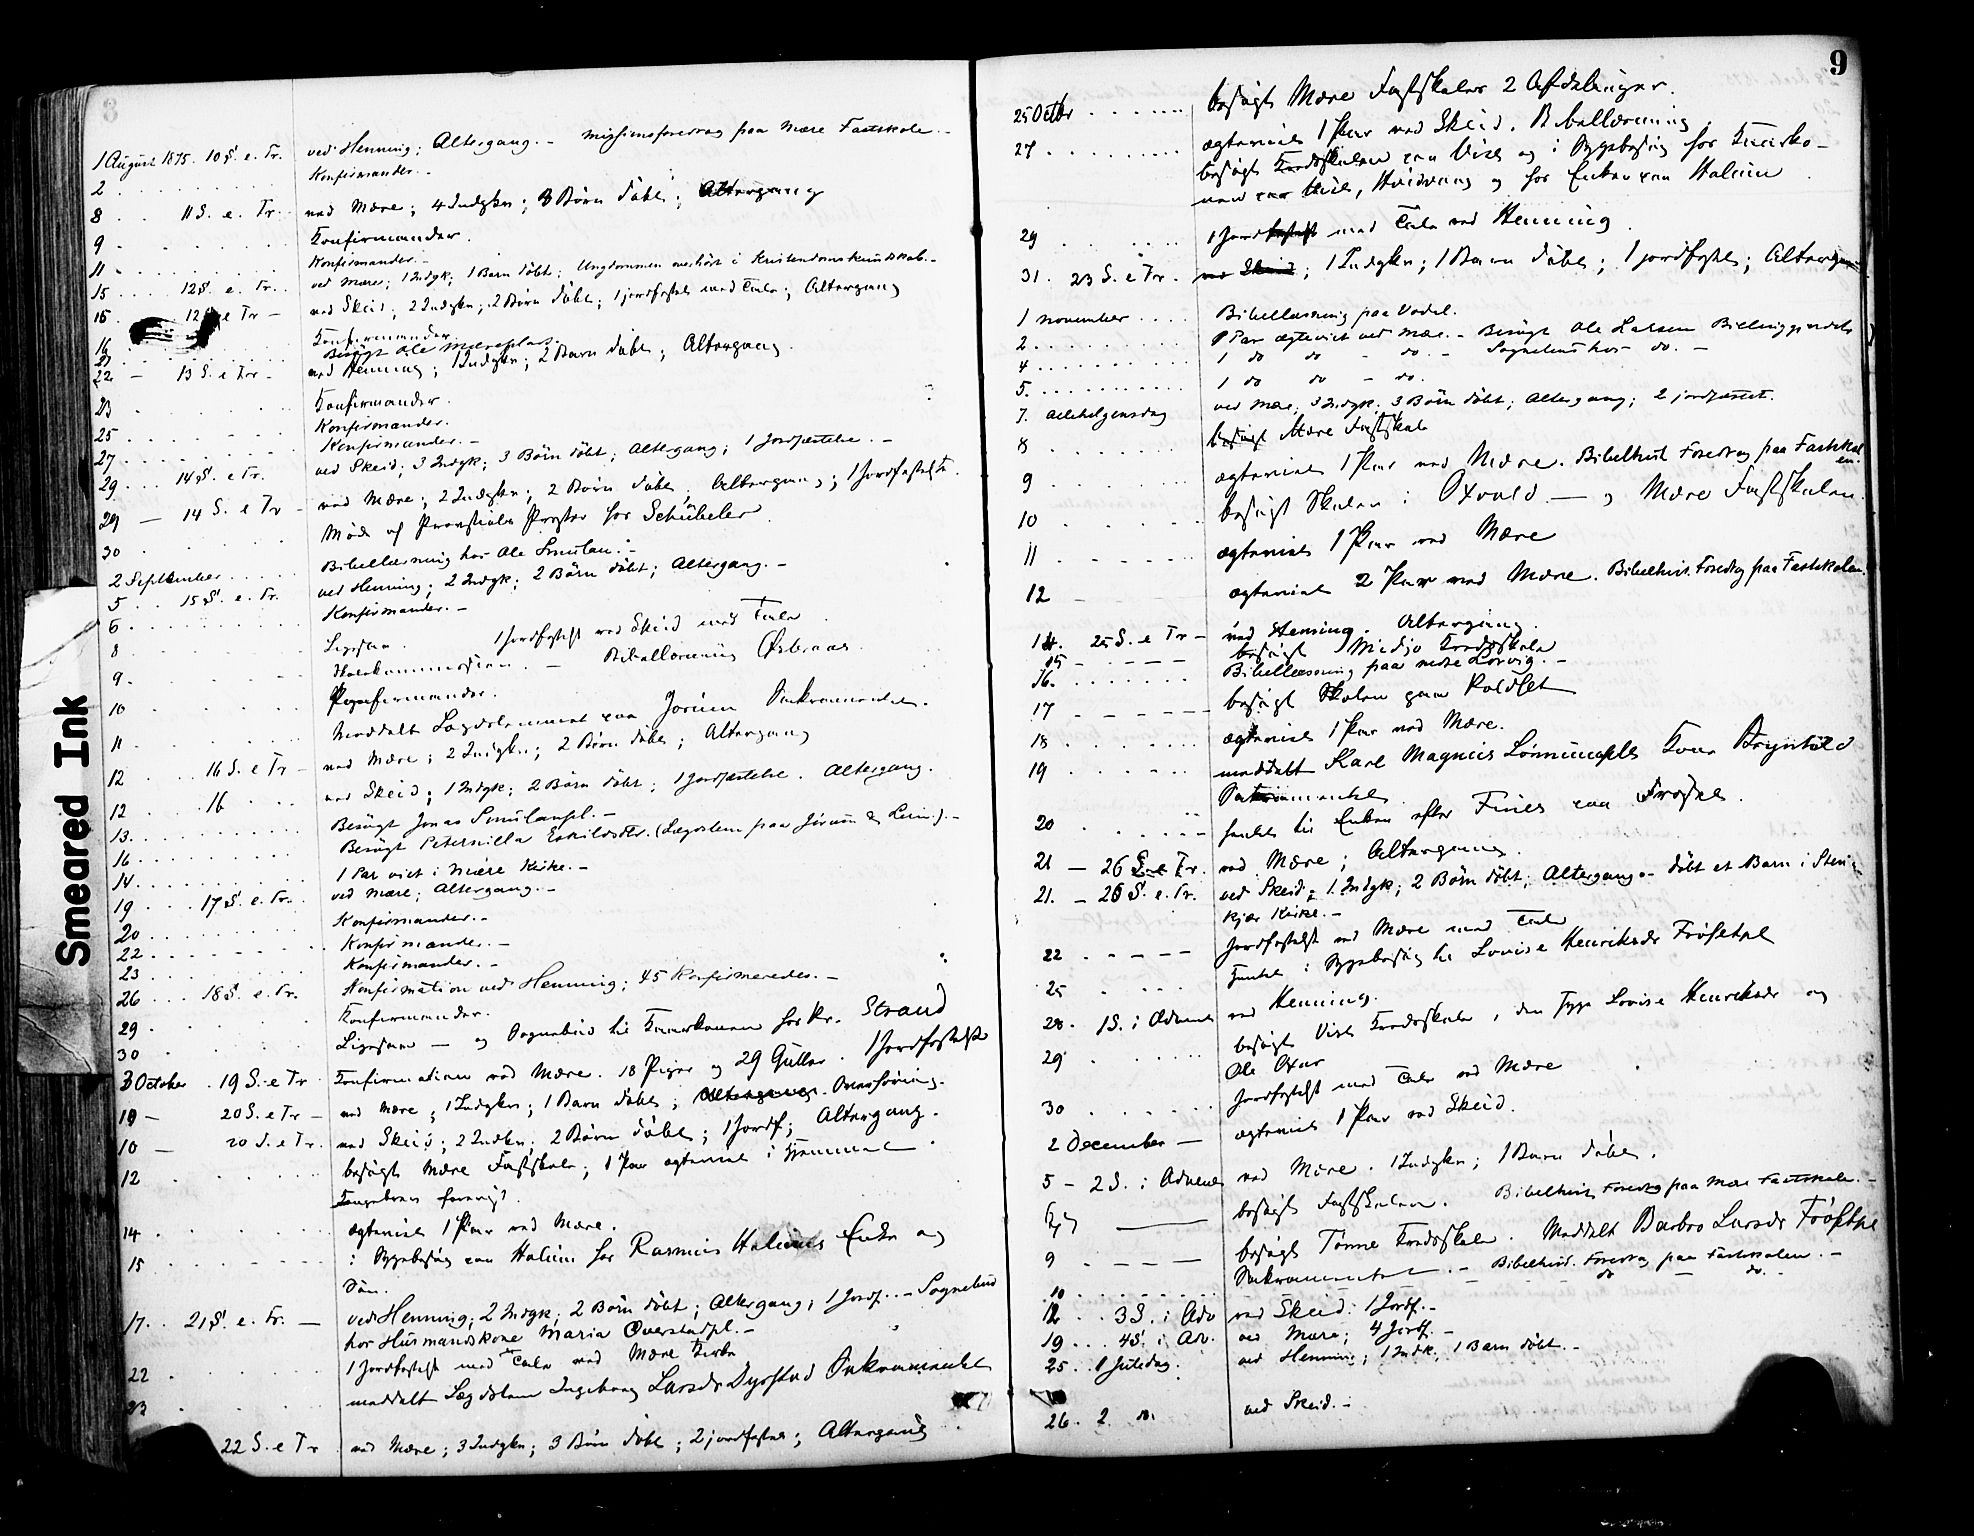 8
1 August 1875. 10 S. e. Tr. ved Henning; Altergang. - Missionsforedrag paa Mære Fastskole. -
2 Konfirmander. -
8 11 S. e. Tr. ved Mære; 4 Indgkn; 3 Børn døbt; Altergang
9 Konfirmander.
11 Konfirmander. -
15 12 S. e. Tr. ved Mære; 1 Indgk; 1 Barn døbt; Ungdommen overhørt i Kristendomskundskab. -
15 12 S. e Tr - ved Skeid; 2 Indgkn; 2 Børn døbt; 1 jordfæstet med Tale; Altergang
16 Konfirmander
21 Besøgt Ole Mæreplads.
22 - 13 S. e Tr - ved Henning; 1 Indgkn; 2 Barn døbt; Altergang
23 Konfirmander.
25 Konfirmander.
27 Konfirmander. -
29 14 S. e Tr. ved Skeid; 3 Indgk; 3 Børn døbt; Altergang; 1 Jordfæstelse. -
29 - 14 S. e Tr - ved Mære; 2 Indgkn; 2 Børn døbt; Altergang; 1 Jordfæstelse.
30 Møde af Provstiets Prester hos Schübeler
2 September Bibellæsning hos Ole Smulan. -
5 15 S. e. Tr. ved Henning; 2 Indgk; 2 Børn døbt; Altergang. -
6 Konfirmander. -
8 Ligsyn. 1 Jordfæstelse ved Skeid med Tale
9 Skolekommission. - Bibellæsning Østeraas.
10 Konfirmander.
11 Meddelt Lægdslemmet paa Jørum Sakramentet.
12 16 S. e Tr - ved Mære; 2 Indgkn; 2 Børn døbt; Altergang
12 16 ved Skeid; 1 Indgk; 2 Børn døbt; 1 Jordfæstelse. Altergang.
13. Besøgt Jonas Smulanpl. -
16 Besøgt Peternilla Eskildsdtr. (Lægdslem paa Jørum & Lein). -
14 1 Par viet i Mære Kirke. -
19 17 S. e. Tr. ved Mære; Altergang. -
20 Konfirmander. -
22 Konfirmander. -
23 Konfirmander. -
26 18 S. e. Tr. Konfirmation ved Henning; 45 Konfirmeredes. -
29 Konfirmander.
30 Ligsyn - og Sognebud til Strand
3 October 19 S. e Tr Konfirmation ved Mære. 18 Piger og 29 Gutter. 1 Jordfæstelse
10 - 20 S. e Tr - ved Mære; 1 Indgkn; 1 Barn døbt; Altergang.
10 - 20 S. e Tr. ved Skeid; 2 Indkn; 2 Børn døbt; 1 Jordf; Altergang.
12 besøgt Mære Fastskole; 1 Par ægteviet i Hjemmet
14 ægteviet 1 Par ved Mære.
15 i Sygebesøg paa Halum hos Rasmus Halums Enke og
Søn.
17. 21 S. e. Tr. - ved Henning; 2 Indgk; 2 Børn døbt; Altergang; 1 Jordf. - Sognebud
hos Husmandskone Maria Overstadpl. -
22 1 Jordfæstelse med Tale ved Mære Kirke
23 meddelt Lægdslem Ingeborg Larsdr Dyrstad Sakramentet
22 S. e Tr ved Mære; 3 Indgkn; 3 Børn døbt; 2 jordfæstet; Altergang
9
25 Octbr besøgt Mære Fastskoles 2 Afdelinger.
27 ægteviet 1 Par ved Skeid. Bibellæsning
besøgt Kredsskolen paa Vist og i Sygebesøg hos
29 1 Jordfæstelse med Tale ved Henning
31. 23 S. e Tr. ved Skeid; 1 Indgkn; 1 Barn døbt; 1 jordfæstet; Altergang
1 November Bibellæsning paa Vadel.
2 1 Par ægteviet ved Mære. - Besøgt Ole Larsen
4 1 do do - do. - Sognebud hos do. -
5. 1 do do - do.
7. Allehelgensdag ved Mære; 3 Indgk; 3 Børn døbt; Altergang; 2 jordfæstet.
8 besøgt Mære Fastskole
9 ægteviet 1 Par ved Mære. Bibelhist. Foredrag paa Fastskolen.
10 besøgt Skolen i Oxvold - og Mære Fastskolen.
11 ægteviet 1 Par ved Mære
12 ægteviet 2 Par ved Mære. Bibelhist. Foredrag paa Fastskolen.
14. 25 S. e Tr - ved Henning. Altergang.
15 besøgt Midjo Kredsskole
16. Bibellæsning paa nedre Lorvig. -
17 besøgt Skolen paa Roldset
18 ægteviet 1 Par ved Mære.
19 meddelt Karl Magnus Kone Brynhild
Sakramentet
20
21 - 26 S. e Tr. ved Mære; Altergang
21. - 26 S. e. Tr. ved Skeid; 1 Indgk; 2 Børn døbt; Altergang. - døbt et Barn i Stenkjær
Kirke. -
22 Jordfæstelse ved Mære med Tale
25 i Sygebesøg til Lovise Henriksdr Frøsetpl
28. 1 S. i Advent ved Henning.
29 besøgt Vist Kredsskole, den syge Lovise Henriksdr og
Ole Oxur
30 Jordfæstelse med Tale ved Mære
2 December - ægteviet 1 Par ved Skeid.
5 - 2 S. i Advent ved Mære. 1 Indgkn; 1 Barn døbt.
6/7 besøgt Fastskolen. Bibelhist. Foredrag paa Mære Fastskole. -
9 besøgt Tønne Kredsskole. Meddelt Barbro Larsdr Frøsetpl
Sakramentet. - Bibelhist. Foredrag paa Fastskolen. -
10 do - do. -
12 3 S. i Adv ved Skeid. 1 Jordf. -
19 4 S. i Adv. ved Mære; 4 Jordf. -
25 1 Juledag. ved Henning; 1 Indk; 1 Barn døbt. -
26. 2 D. ved Skeid. -
Smeared Ink